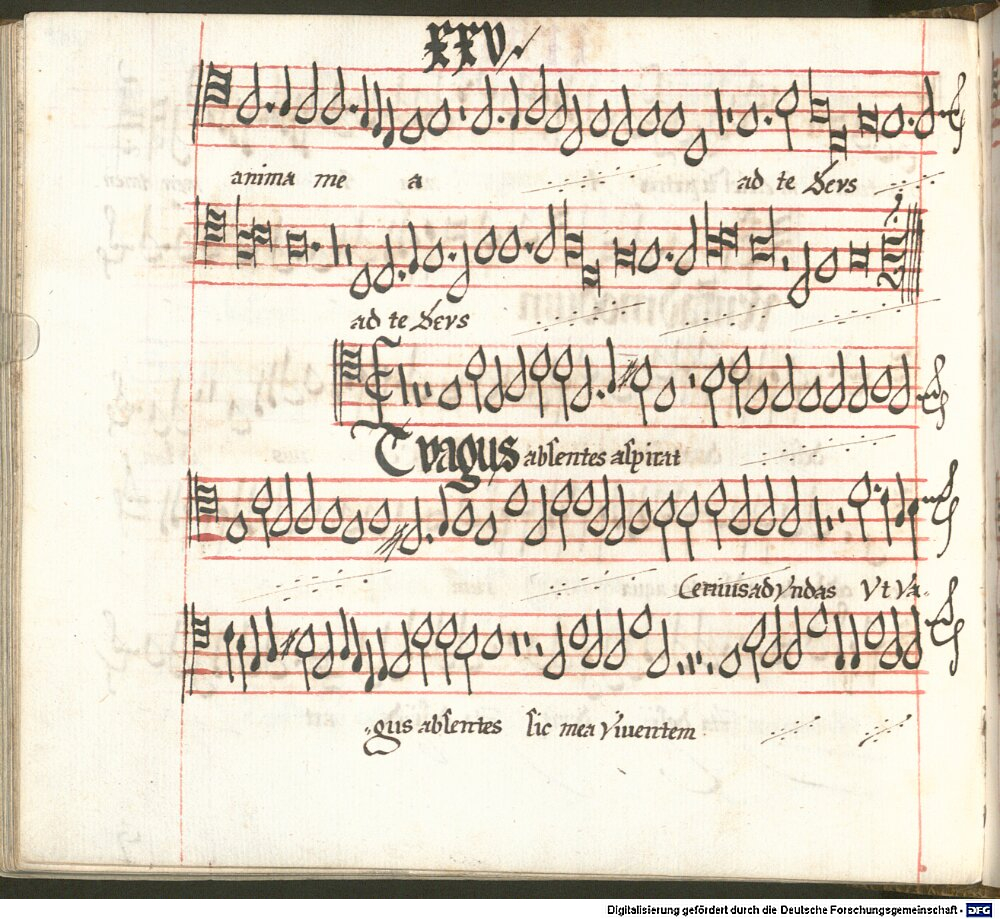 XXV
anima mea ad te Deus
ad te Deus
Tvagus absentes aspirat
Cervus ad Vndas Vt Va-
-gus absentes sic mea Viventem
Digitalisierung gefördert durch die Deutsche Forschungsgemeinschaft - DFG